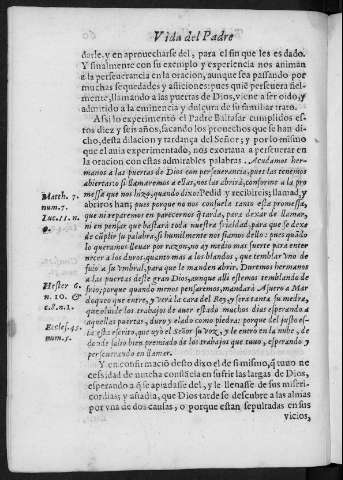 Vida del Padre
darle, y en aprouecharse del, para el fin que les es dado.
Y finalmente con su exemplo y experiencia nos animan
a la perseuerancia en la oracion, aunque sea passando por
muchas sequedades y afliciones: pues quiẽ perseuera fiel-
mente, llamando a las puertas de Dios, viene a ser oido, y
admitido a la eminencia y dulçura de su familiar trato.
Assi lo experimentò el Padre Baltasar cumplidos es-
tos diez y seis años, sacando los prouechos que se han di-
cho, desta dilacion y tardança del Señor; y por lo mismo
que el auia experimentado, nos exortaua a perseuerar en
la oracion con estas admirables palabras. Acudamos her-
manos a las puertas de Dios con perseuerancia, pues las tenemos
abiertas, o si llamaremos a ellas, nos las abrirà, conforme a la pro
messa que nos hizo, quando dixo: Pedid y recibireis; llamad, y
abriros han; pues porque no nos consuela tanto esta promessa,
que ni reparemos en parecernos q̃ tarda, para dexar de llamar,
ni en pensar que bastarà toda nuestra frialdad para que se dexe
de cũplir su palabra, si humilmente fiamos dello: pues quãdo
lo queramos lleuar por razon, no ay medio mas fuerte para ente
necer a los duros, quanto mas a los blandos, que temblar vno de
frio a su vmbral, para que le manden abrir. Duremos hermanos
a las puertas deste gran Dios, aunque alli estemos temblando de
frio; porque quando menos pensaremos, mandarà Asuero a Mar
doqueo que entre, y verà la cara del Rey, y serà tanta su medra,
que oluide los trabajos de auer estado muchos dias esperando a
aquellas puertas, duro y elado como piedra: porque del justo es-
tà esta escrito, que oyò el Señor su voz, y le entrò en la nube, de
donde salio bien premiado de los trabajos que tuuo, esperando y
perseuerando en llamar.
Y en confirmaciõ desto dixo el de si mismo, q̃ tuuo ne
cessidad de mucha constãcia en sufrir las largas de Dios,
esperando a q̃ se apiadasse del, y le llenasse de sus miseri-
cordias; y añadia, que Dios tarde se descubre a las almas
por vna de dos causas, o porque estan sepultadas en sus
vicios,
Matth. 7.
num. 7.
Luc. 11. n.
9.
Hester 6.
n. 10. &
c. 8. n. 1.
Eccles. 45.
num. 5.